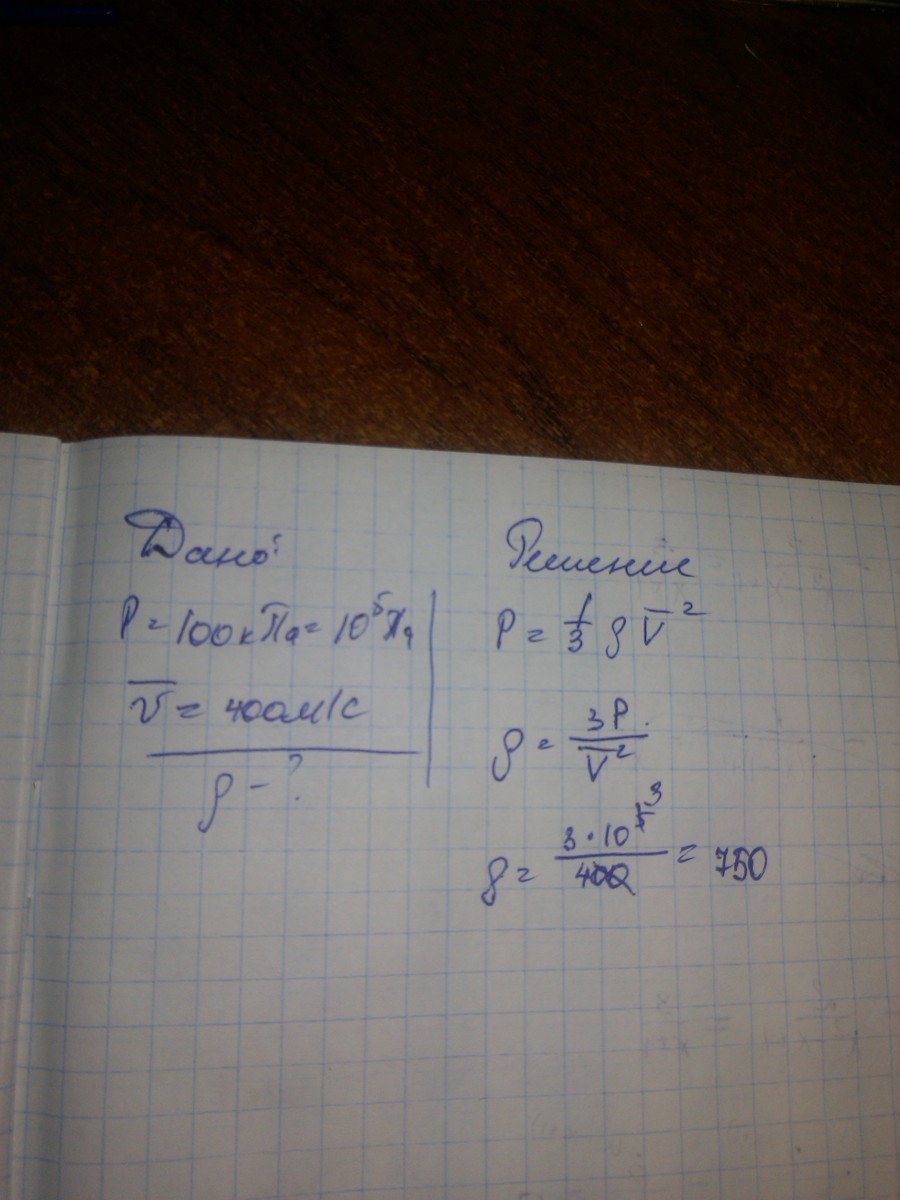 Дано:
P = 100кПа = 10⁵Па
v̅ = 400м/с
ρ - ?
Решение
P = 1/3 ρ V̅²
ρ = 3P / V̅²
ρ = 3·10⁵ ³ / 400 = 750